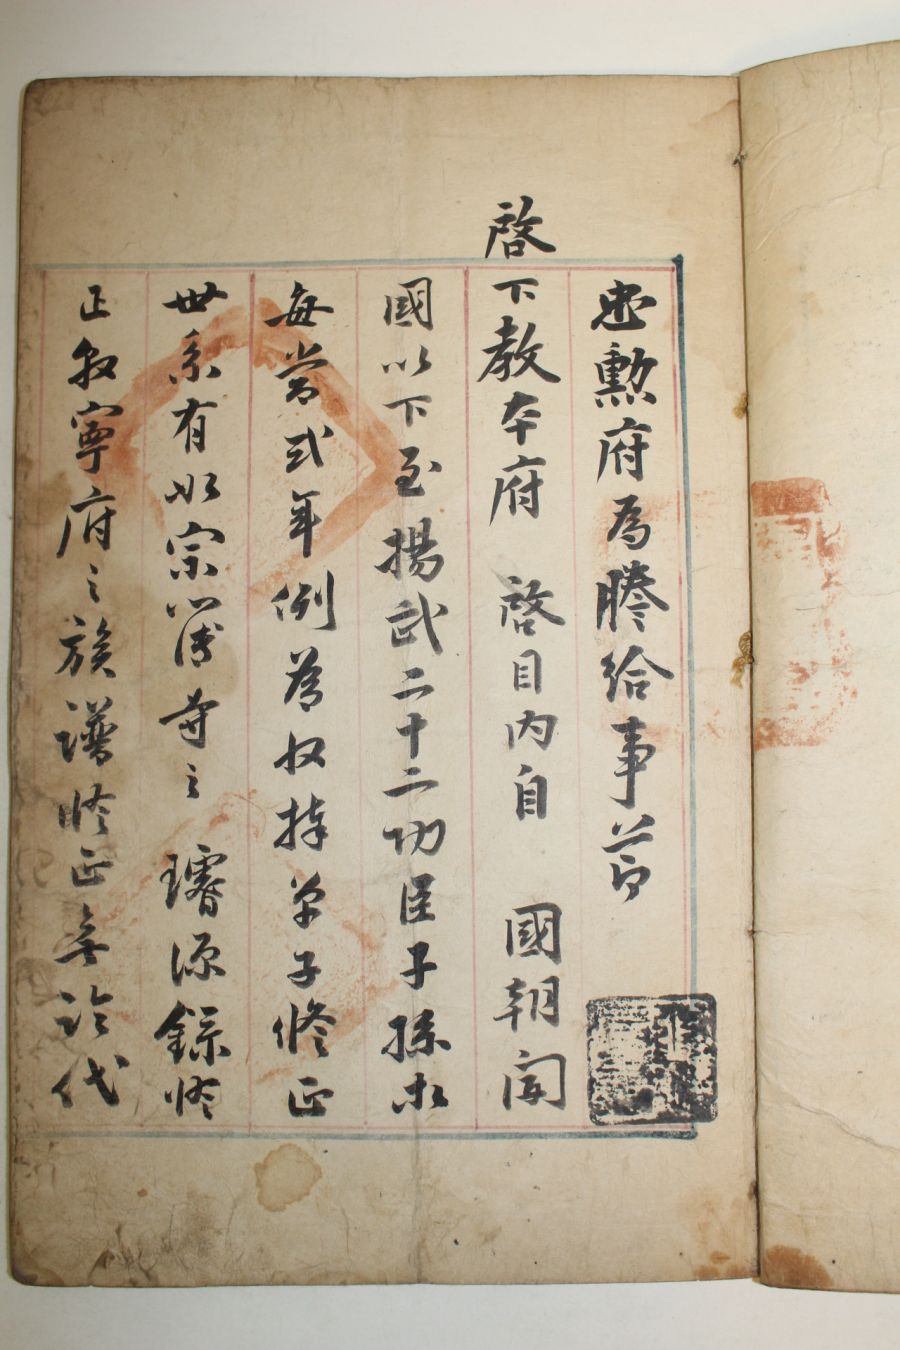 忠勳府為謄給事節
啓下教本府 啓目內自 國朝開
國以下至揚武二十二功臣子孫等
每當式年例爲收捧單子修正
世系有如宗簿寺之 璿源錄修
正敦寧府之族譜修正無論代